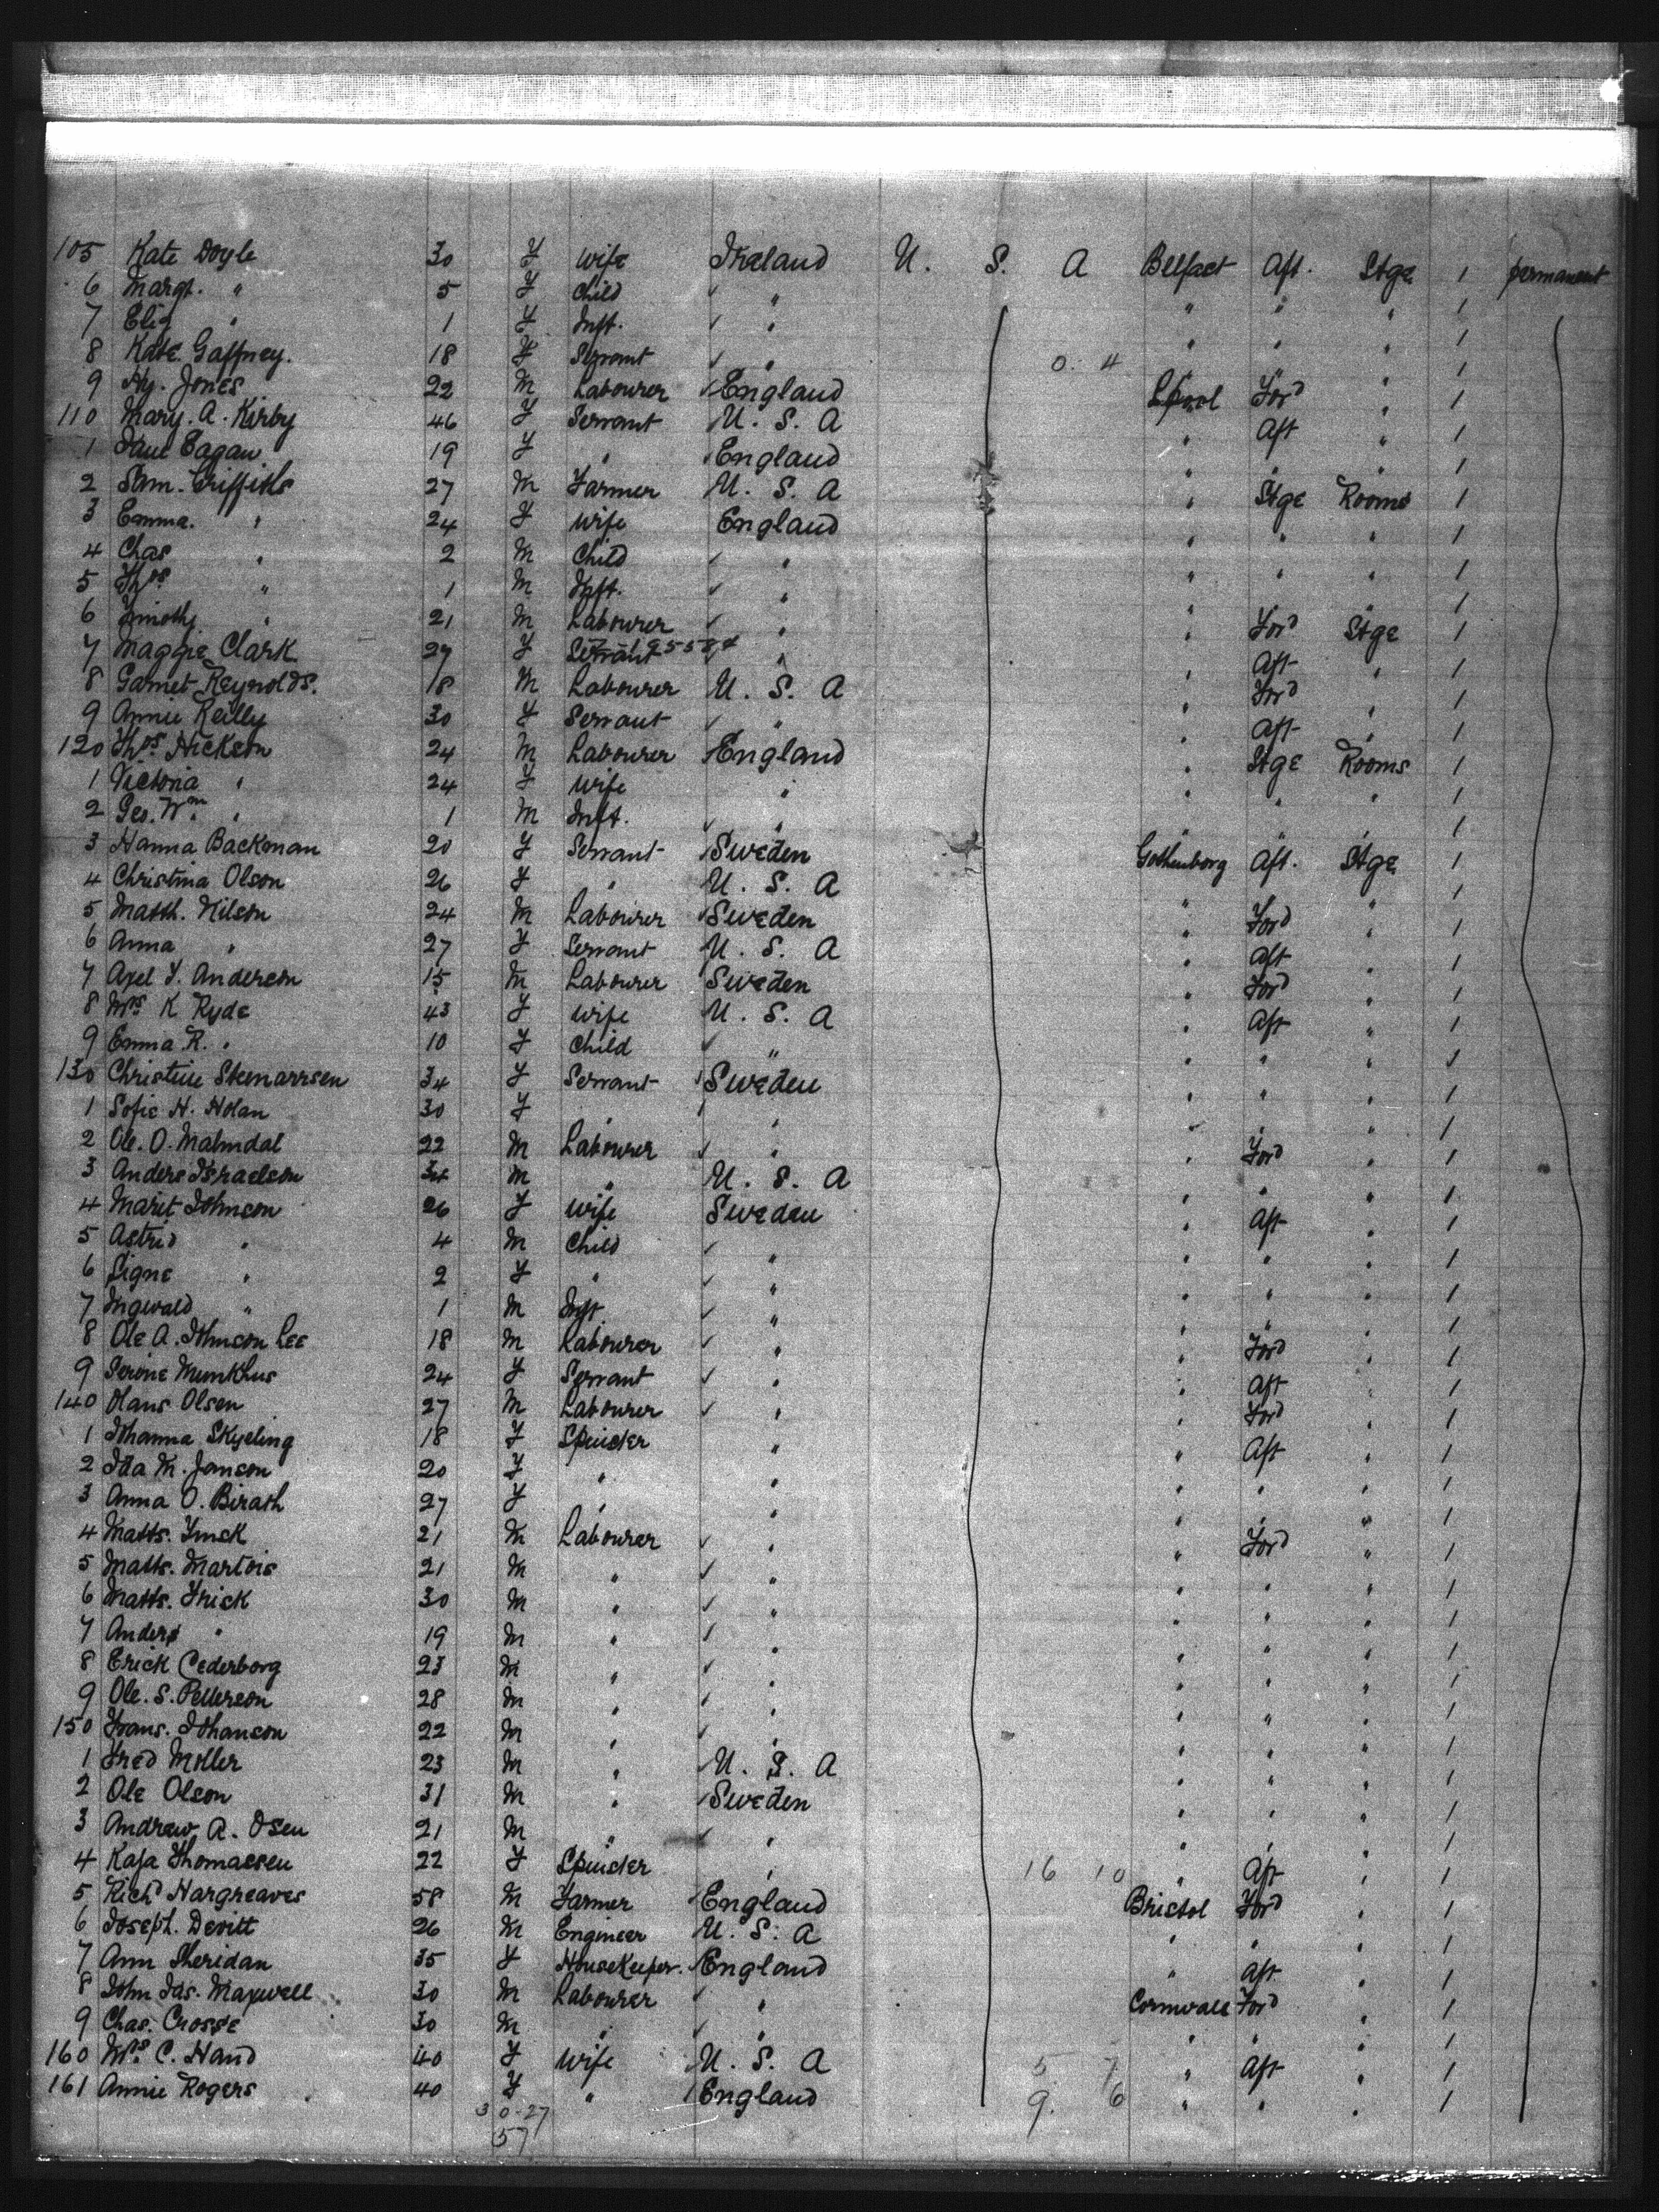 105 Kate Doyle 30 F Wife Ireland U. S. A Belfast Aft. Stge 1 permanent
6 Margt. " 5 F Child ✓ " " " " 1
7 Eliz " 1 F Inft. ✓ " " " " 1
8 Kate Gaffney. 18 F Servant ✓ " 0. 4 " " " 1
9 Hy. Jones 22 M Labourer ✓ England Lpool Ford " 1
110 Mary. A. Kirby 46 F Servant U. S. A " Aft " 1
1 Eagan 19 F " England " " " 1
2 Sam. Griffiths 27 M Farmer U. S. A " Stge Rooms 1
3 Emma. " 24 F Wife England " " " 1
4 Chas " 2 M Child ✓ " " " " 1
5 Thos " 1 M Inft. ✓ " " " " 1
6 Timothy " 21 M Labourer ✓ " " Ford Stge 1
7 Maggie Clark 27 F Servant " " Aft " 1
8 Garnet Reynolds. 18 M Labourer U. S. A " Ford " 1
9 Annie Reilly 30 F Servant ✓ " " Aft " 1
120 Thos Hickson 24 M Labourer England " Stge Rooms 1
1 Victoria " 24 F Wife " " " " 1
2 Geo. Wm. " 1 M Inft. ✓ " " " " 1
3 Hanna Backman 20 F Servant ✓ Sweden Gothenborg Aft. Stge 1
4 Christina Olson 26 F " U. S. A " " " 1
5 Matth. Nilson 24 M Labourer ✓ Sweden " Ford " 1
6 Anna " 27 F Servant U. S. A " Aft " 1
7 Axel F. Anderson 15 M Labourer Sweden " Ford " 1
8 Mrs K Ryde 43 F Wife U. S. A " Aft " 1
9 Emma R. " 10 F Child ✓ " " " " 1
130 Christine Stenarrsen 34 F Servant Sweden " " " 1
1 Sofie H. Holan 30 F " " " " " 1
2 Ole. O. Malmdal 22 M Labourer ✓ " " Ford " 1
3 Anders Israelson 34 M " U. S. A " " " 1
4 Marit Johnson 26 F Wife Sweden " Aft " 1
5 Astrid " 4 M Child ✓ " " " " 1
6 Signe " 2 F " ✓ " " " " 1
7 Ingwald " 1 M Inft. ✓ " " " " 1
8 Ole A. Johnson Lee 18 M Labourer ✓ " " Ford " 1
9 Serine Munkhus 24 F Servant ✓ " " Aft " 1
140 Hans Olsen 27 M Labourer ✓ " " Ford " 1
1 Johanna Skyeling 18 F Spinster " " Aft " 1
2 Ida M. Janson 20 F " " " " " 1
3 Anna O. Birath 27 F " " " " " 1
4 Matts. 21 M Labourer ✓ " " Ford " 1
5 Matts. Martois 21 M " ✓ " " " " 1
6 Matts. Frick 30 M " ✓ " " " " 1
7 Anders " 19 M " ✓ " " " " 1
8 Erick Cederborg 23 M " ✓ " " " " 1
9 Ole. S. Petterson 28 M " ✓ " " " " 1
150 Frans. Johanson 22 M " ✓ " " " " 1
1 Fred Moller 23 M " U. S. A " " " 1
2 Ole Olson 31 M " Sweden " " " 1
3 Andrew A. Osen 21 M " ✓ " " " " 1
4 Kaja Thomassen 22 F Spinster " 16 10 " Aft " 1
5 Richd Hargreaves 58 M Farmer England Bristol Ford " 1
6 Joseph. Devitt 26 M Engineer U. S. A " " " 1
7 Ann Sheridan 35 F Housekeeper. England " Aft " 1
8 John Jas. Maxwell 30 M Labourer ✓ " Cornwall Ford " 1
9 Chas. Crosse 30 M " ✓ " " " " 1
160 Mrs. C. Hand 40 F Wife U. S. A 5. 7 " Aft " 1
161 Annie Rogers 40 F " England 9. 6 " " " 1
30-27
57